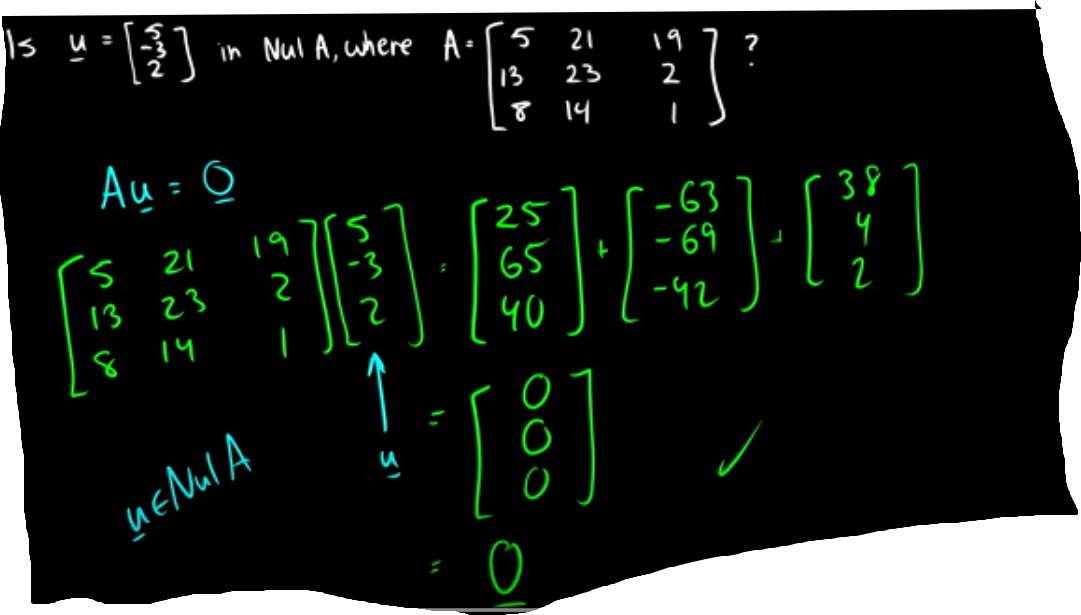 Is u = [5 -3 2] in Nul A, where A = [5 21 19
13 23 2
8 14 1] ?
Au = 0
[5 21 19
13 23 2
8 14 1] [5
-3
2] = [25
65
40] + [-63
-69
-42] + [38
4
2]
u
= [0
0
0] ✓
u ∈ Nul A
= 0